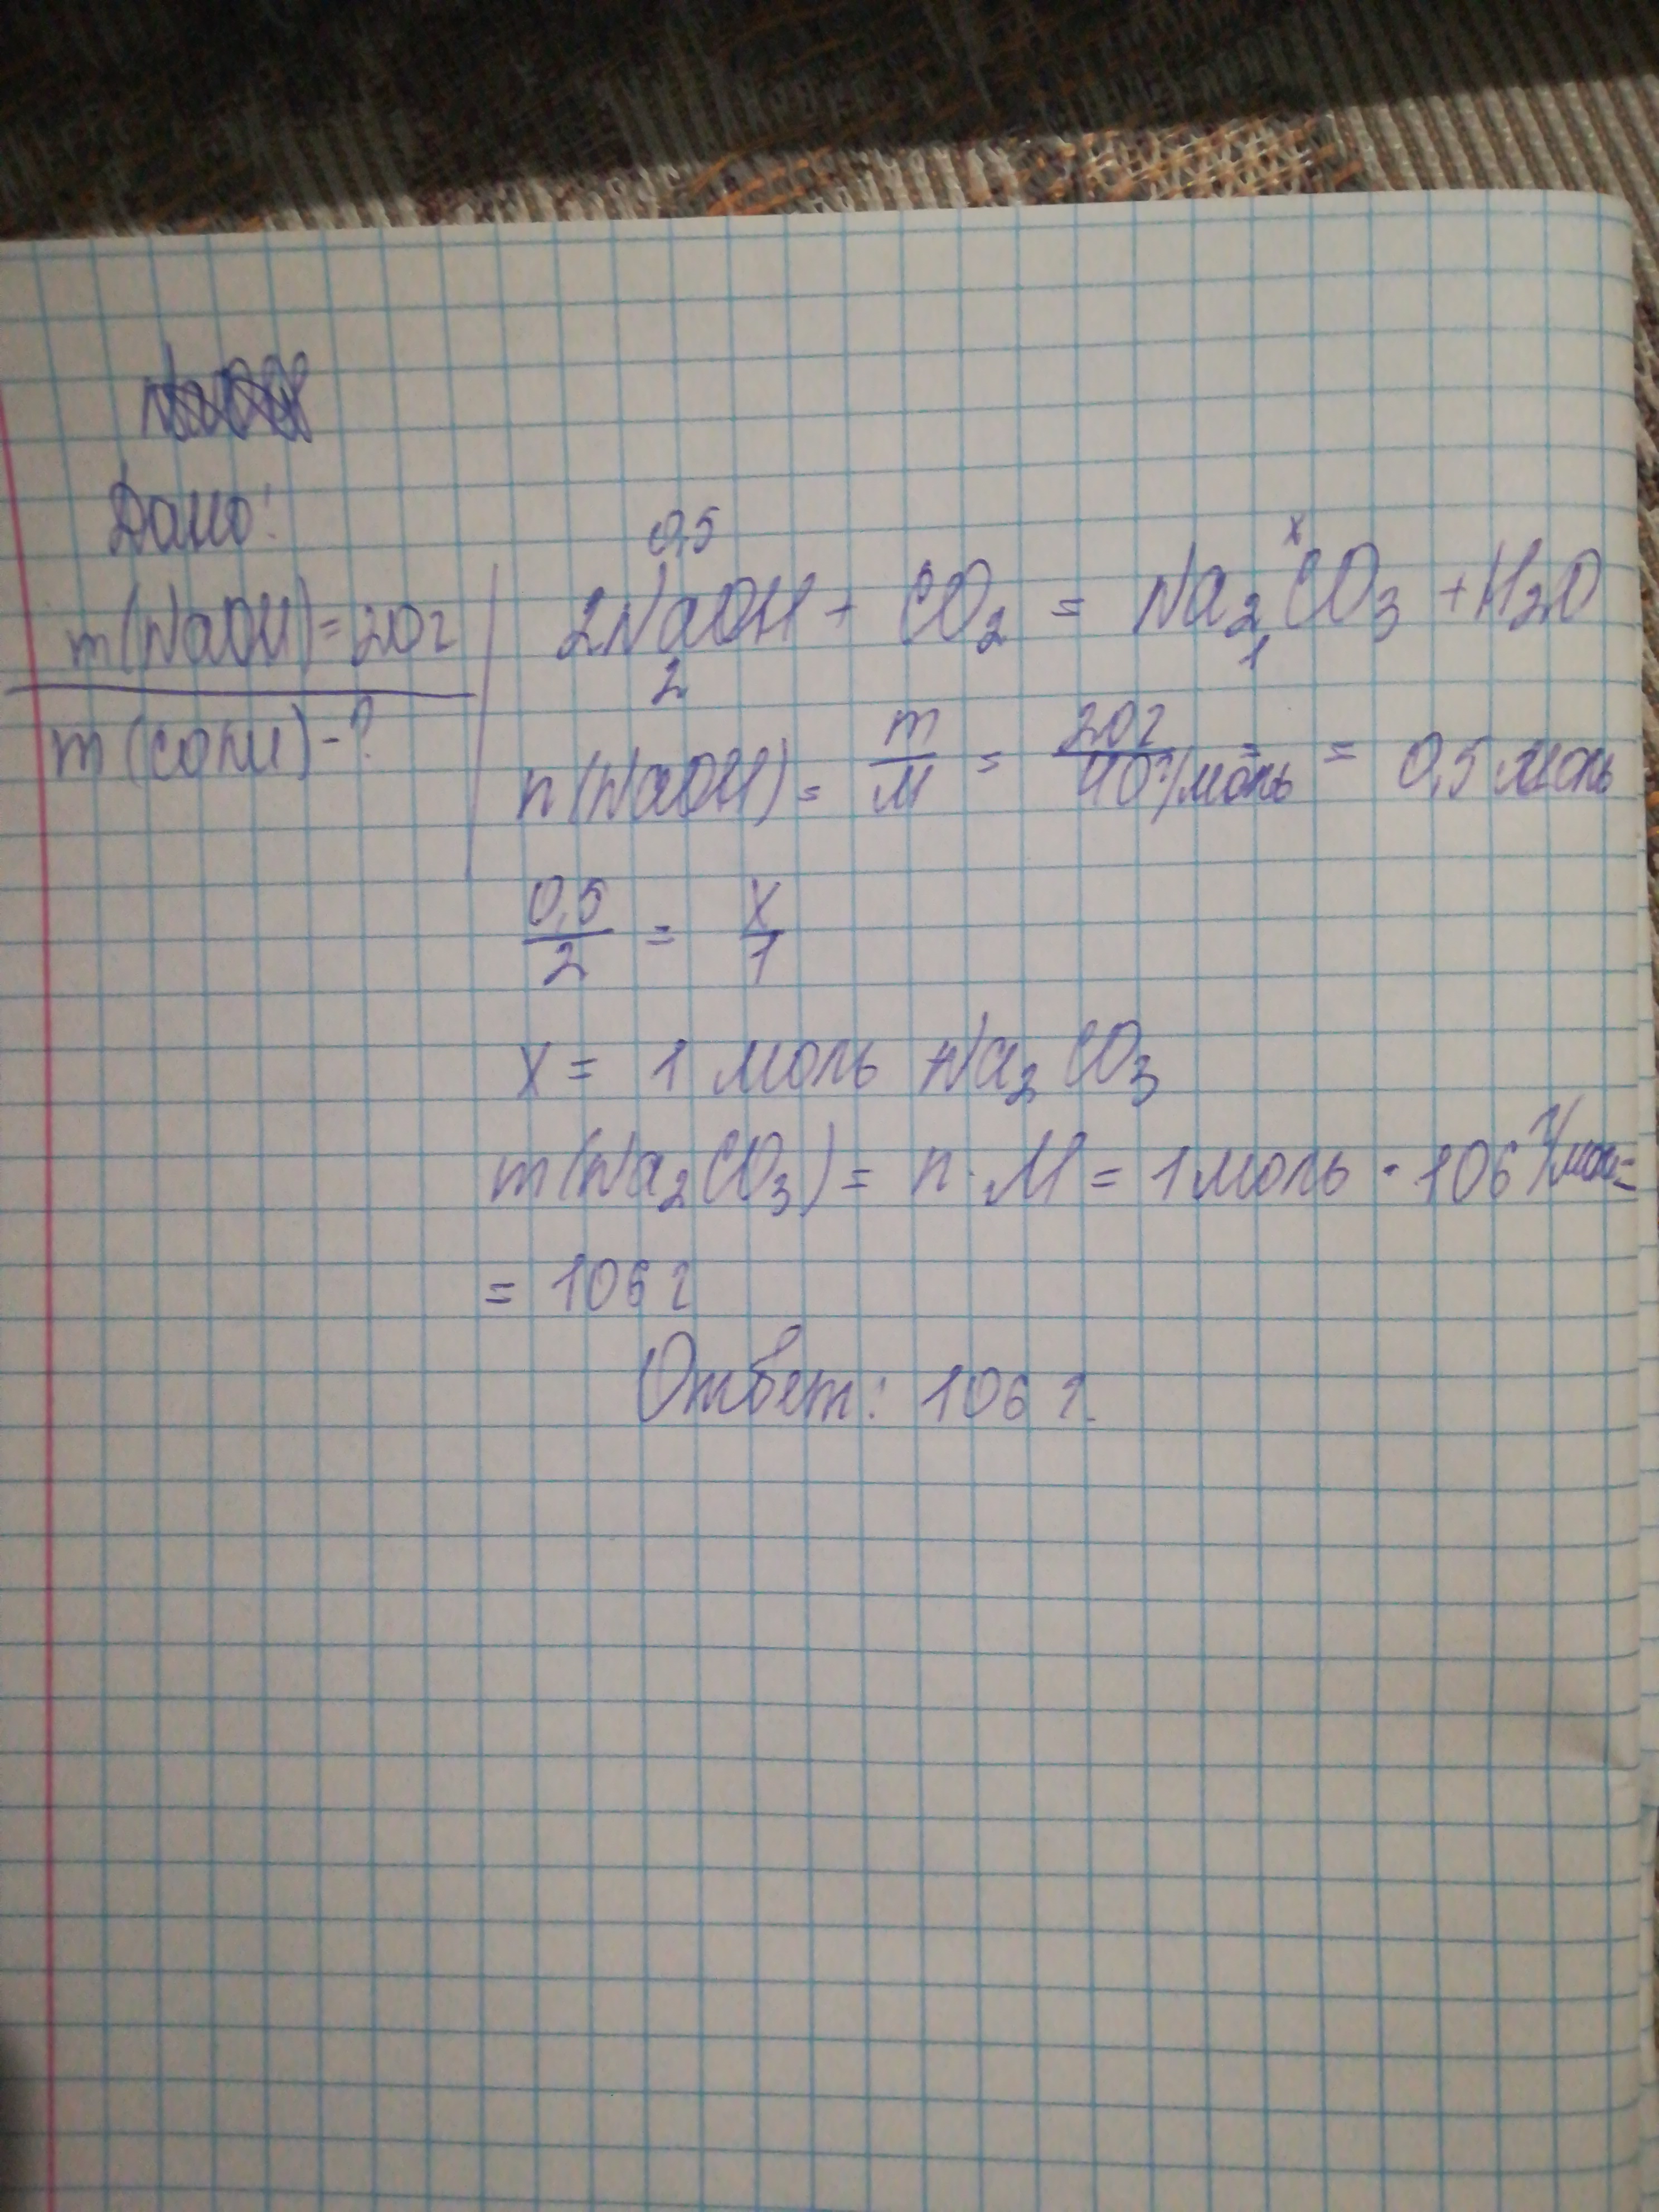 Дано:
m(NaOH)=20г
m(соли)-?
0,5 x
2NaOH + CO2 = Na2CO3 + H2O
2 1
n(NaOH)= m/M = 20г/40г/моль = = 0,5 моль
0,5/2 = x/1
x = 1 моль Na2CO3
m(Na2CO3)= n·M = 1 моль · 106 г/моль=
= 106 г
Ответ: 106 г.